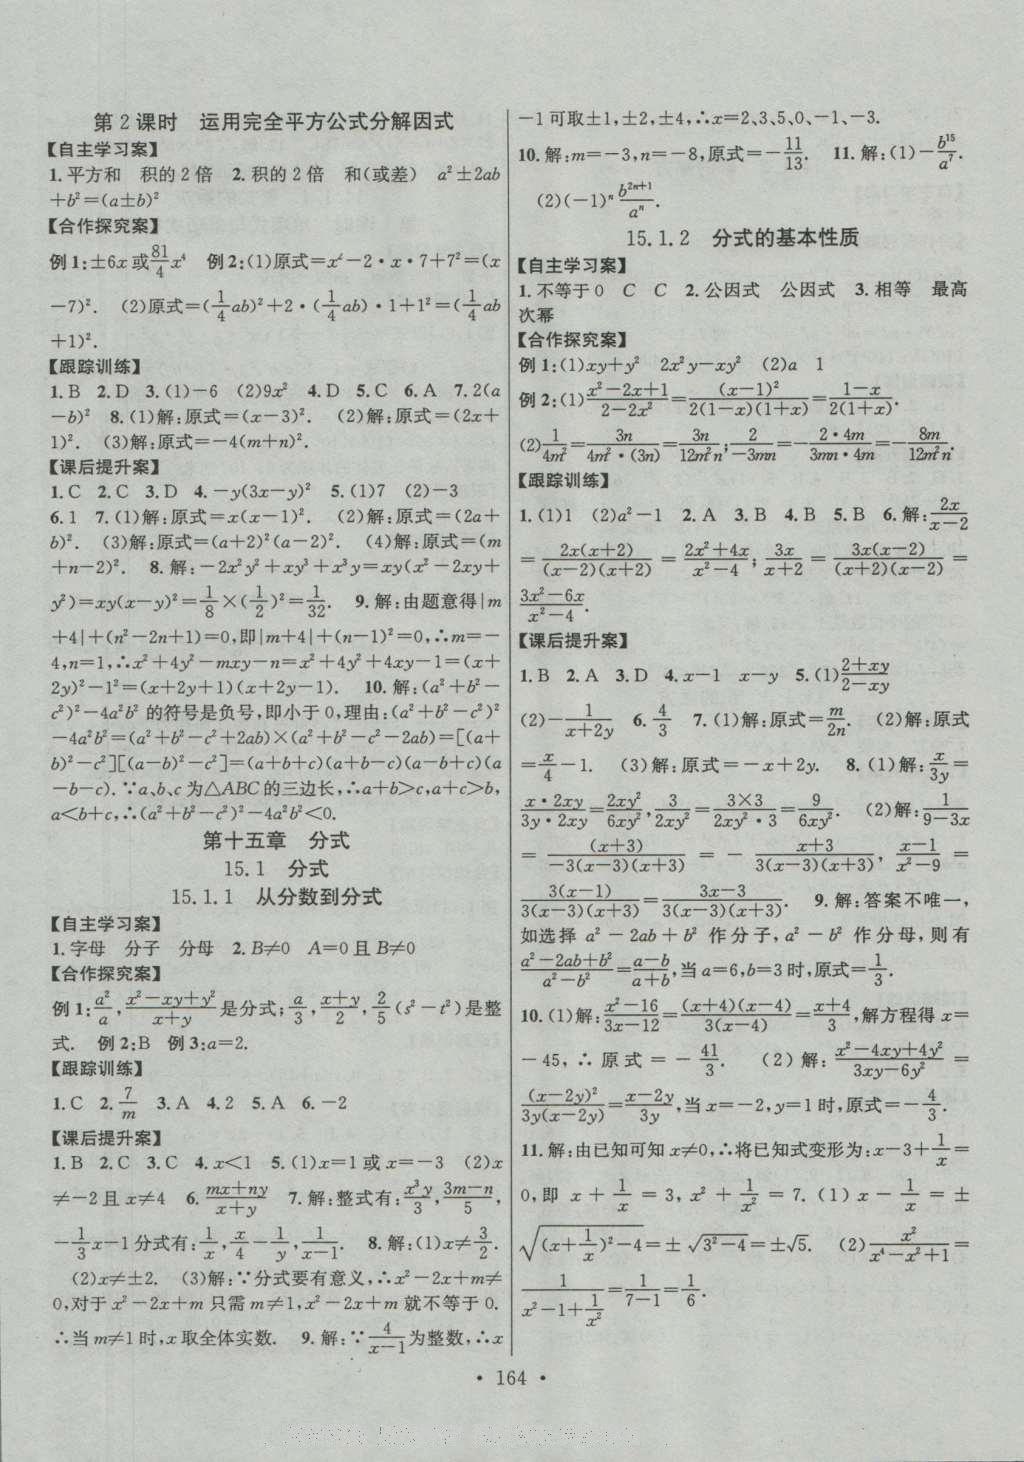 第2课时　运用完全平方公式分解因式
【自主学习案】
1.平方和　积的2倍　2.积的2倍　和(或差)　a²±2ab
+b²=(a±b)²
【合作探究案】
例1:±6x或81/4x⁴　例2:(1)原式=x²-2·x·7+7²=(x
-7)².　(2)原式=(1/4ab)²+2·(1/4ab)·1+1²=(1/4ab
+1)².
【跟踪训练】
1.B　2.D　3.(1)-6　(2)9x²　4.D　5.C　6.A　7.2(a
-b)²　8.(1)解:原式=(x-3)².　(2)解:原式=(2x+
1)².　(3)解:原式=-4(m+n)².
【课后提升案】
1.C　2.C　3.D　4.-y(3x-y)²　5.(1)7　(2)-3
6.1　7.(1)解:原式=x(x-1)².　(2)解:原式=(2a+
b)².　(3)解:原式=(a+2)²(a-2)².　(4)解:原式=(m
+n-2)².　8.解:-2x²y²+xy³+x³y=xy(x²-2xy+
y²)=xy(x-y)²=1/8×(1/2)²=1/32.　9.解:由题意得|m
+4|+(n²-2n+1)=0,即|m+4|+(n-1)²=0,∴m=-
4,n=1,∴x²+4y²-mxy-n=x²+4y²+4xy-1=(x+
2y)²-1²=(x+2y+1)(x+2y-1).　10.解:(a²+b²-
c²)²-4a²b²的符号是负号,即小于0,理由:(a²+b²-c²)²
-4a²b²=(a²+b²-c²+2ab)×(a²+b²-c²-2ab)=[(a+
b)²-c²][(a-b)²-c²]=(a+b+c)(a+b-c)(a-b+c)(a
-b-c).∵a、b、c为△ABC的三边长,∴a+b>c,a+c>b,
a<b+c,∴(a²+b²-c²)²-4a²b²<0.
第十五章　分式
15.1　分式
15.1.1　从分数到分式
【自主学习案】
1.字母　分子　分母　2.B≠0　A=0且B≠0
【合作探究案】
例1:a²/a,(x²-xy+y²)/(x+y)是分式;a/3,(x+y)/2,2/5(s²-t²)是整
式.　例2:B　例3:a=2.
【跟踪训练】
1.C　2.7/m　3.A　4.2　5.A　6.-2
【课后提升案】
1.B　2.C　3.C　4.x<1　5.(1)x=1或x=-3　(2)x
≠-2且x≠4　6.(mx+ny)/(x+y)　7.解:整式有:x³y/3,(3m-n)/5,
-1/3x-1分式有:1/x,x/4-1/y,1/(x-1).　8.解:(1)x≠3/2.
(2)x≠±2.　(3)解:∵分式要有意义,∴x²-2x+m≠
0,对于x²-2x+m只需m≠1,x²-2x+m就不等于0.
∴当m≠1时,x取全体实数.　9.解:∵4/(x-1)为整数,∴x
-1可取±1,±2,±4,∴x=2、3、5、0、-1、-3.
10.解:m=-3,n=-8,原式=-11/13.　11.解:(1)-b¹⁵/a⁷.
(2)(-1)ⁿb²ⁿ⁺¹/aⁿ.
15.1.2　分式的基本性质
【自主学习案】
1.不等于0　C　C　2.公因式　公因式　3.相等　最高
次幂
【合作探究案】
例1:(1)xy+y²　2x²y-xy²　(2)a　1
例2:(1)(x²-2x+1)/(2-2x²)=(x-1)²/2(1-x)(1+x)=(1-x)/2(1+x).
(2)1/4m²=3n/4m²·(3n)=3n/12m²n;2/-3mn=-2·4m/3mn·4m=-8m/12m²n.
【跟踪训练】
1.(1)1　(2)a²-1　2.A　3.B　4.B　5.B　6.解:2x/(x-2)
=2x(x+2)/(x-2)(x+2)=(2x²+4x)/(x²-4);3x/(x+2)=3x(x-2)/(x+2)(x-2)=
(3x²-6x)/(x²-4).
【课后提升案】
1.B　2.A　3.D　4.x-1　x-y　5.(1)(2+xy)/(2-xy)
(2)-1/(x+2y)　6.4/3　7.(1)解:原式=m/2n.　(2)解:原式
=x/4-1.　(3)解:原式=-x+2y.　8.(1)解:x/3y=
x·2xy/3y·2xy=2xy²/6xy²,3/2xy²=3×3/2xy²·3=9/6xy².　(2)解:1/(9-3x)
=(x+3)/-3(x-3)(x+3)=-(x+3)/3(x-3)(x+3),(x-1)/(x²-9)=
3(x-1)/3(x-3)(x+3)=(3x-3)/3(x-3)(x+3).　9.解:答案不唯一,
如选择a²-2ab+b²作分子,a²-b²作分母,则有
(a²-2ab+b²)/(a²-b²)=(a-b)/(a+b),当a=6,b=3时,原式=1/3.
10.(1)解:(x²-16)/(3x-12)=(x+4)(x-4)/3(x-4)=(x+4)/3,解方程得x=
-45,∴原式=-41/3.　(2)解:(x²-4xy+4y²)/(3xy-6y²)=
(x-2y)²/3y(x-2y)=(x-2y)/3y,当x=-2,y=1时,原式=-4/3.
11.解:由已知可知x≠0,∴将已知式变形为:x-3+1/x=
0,即x+1/x=3,x²+1/x²=7.(1)x-1/x=±
√((x+1/x)²-4)=±√(3²-4)=±√5.　(2)x²/(x⁴-x²+1)=
1/(x²-1+1/x²)=1/(7-1)=1/6.
·164·